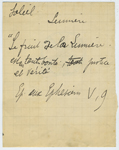 Soleil
Lumière
"Le fruit de la Lumière
est toute bonté, justice
et vérité"
Ep aux Ephésiens V, 9